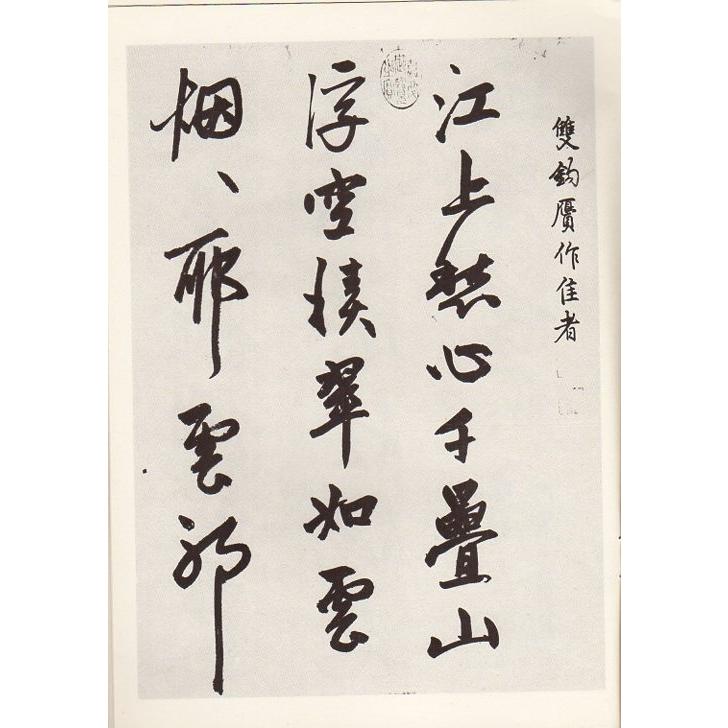 雙鈎贗作佳者
江上愁心千疊山
浮空積翠如雲
烟、耶雲耶